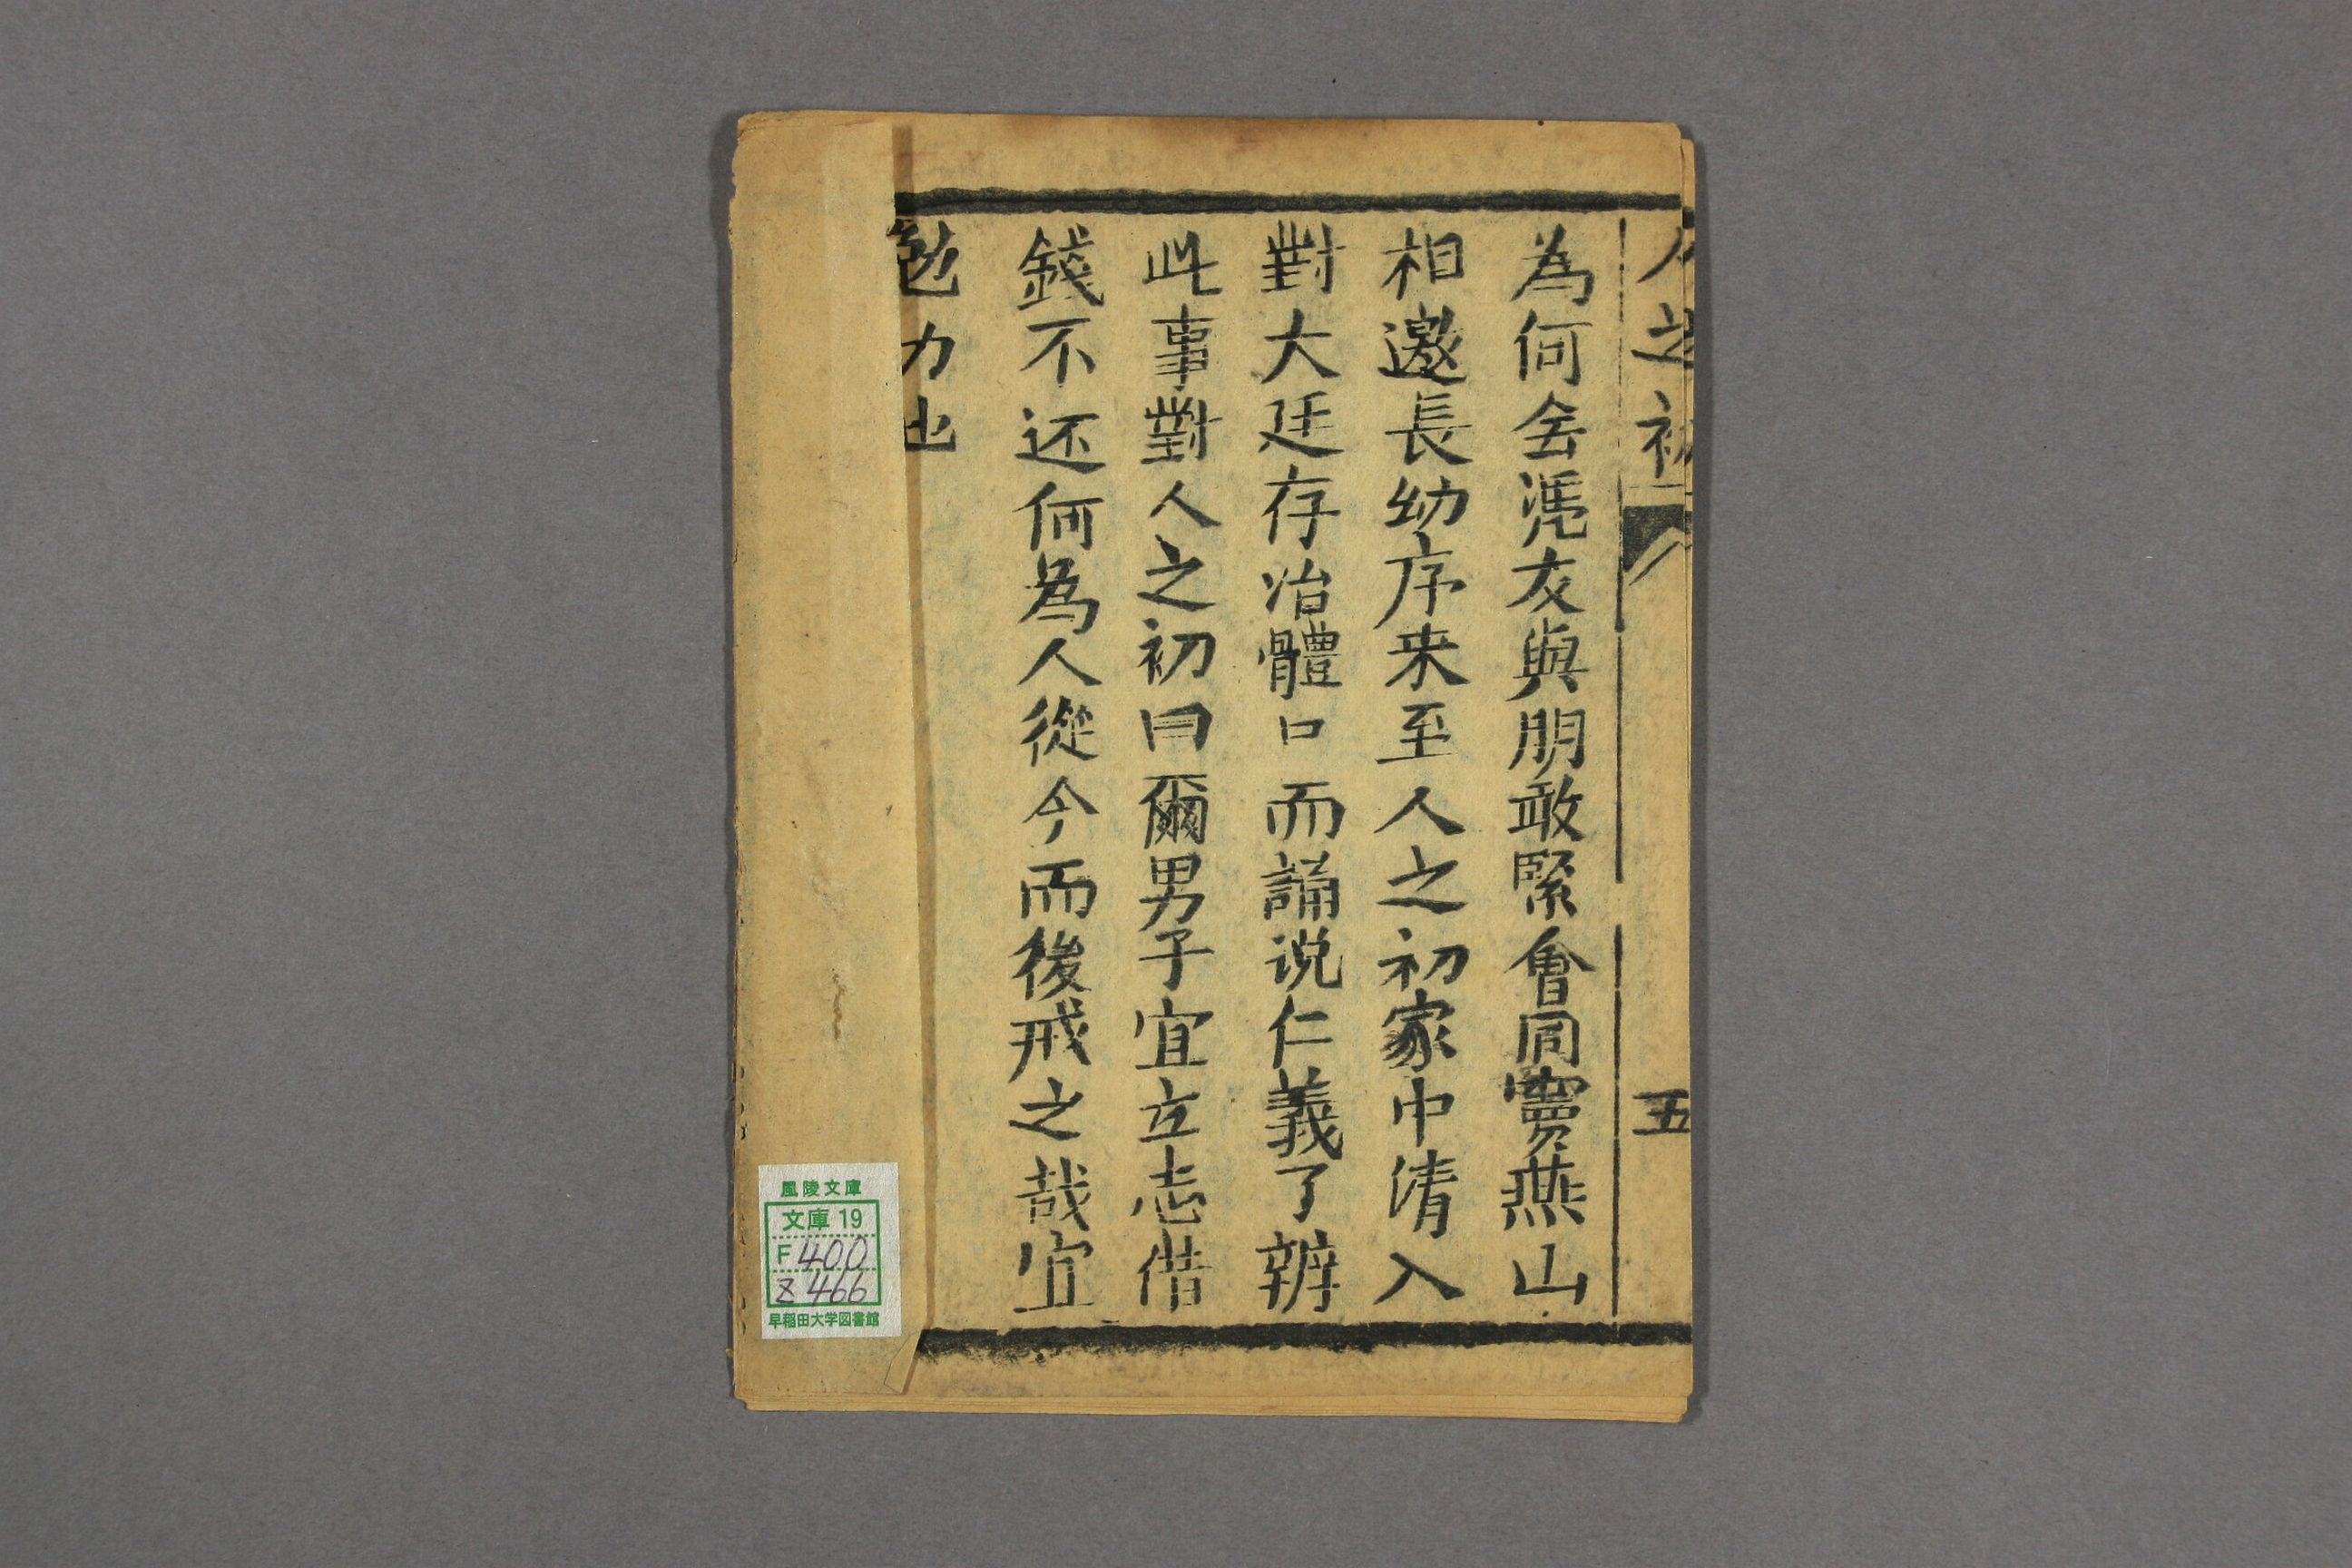 人之初
五
為何舍慿友與朋敢緊會同竇燕山
相邀長幼序来至人之初家中清入
對大廷存冶體口而誦说仁義了辨
此事對人之初曰爾男子宜立志借
錢不还何為人從今而後戒之哉宜
勉力也
風陵文庫
文庫 19
F 400
Z 466
早稲田大学図書館